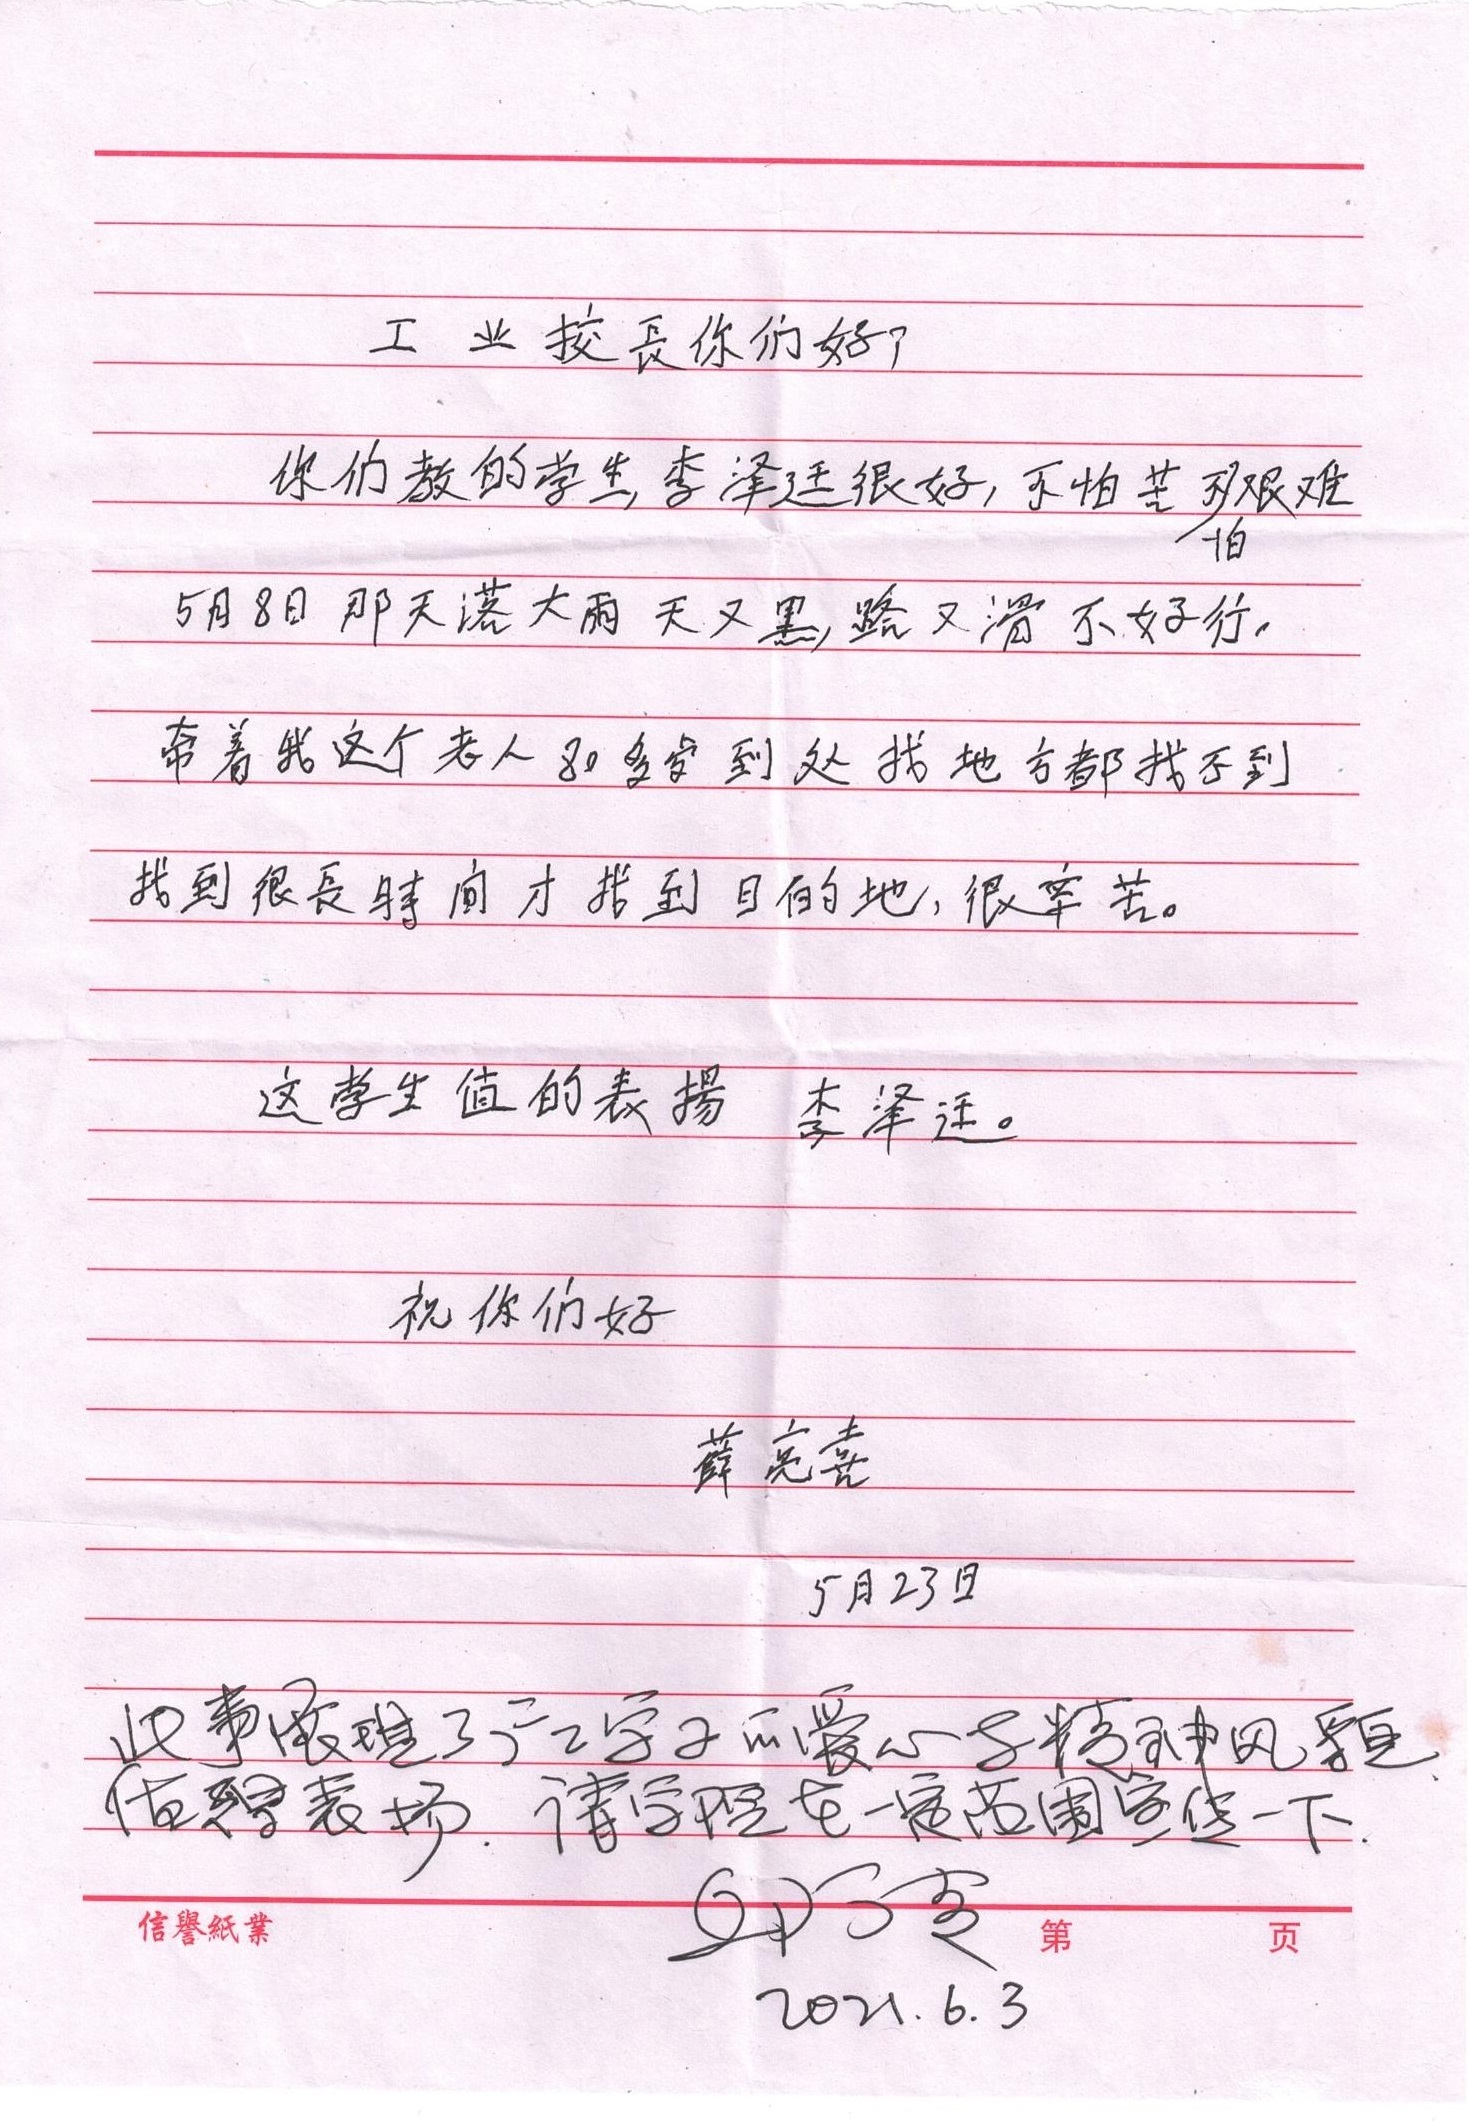 工业校長你们好?
你们教的学生,李泽廷很好,不怕苦不怕艰难
5月8日那天落大雨天又黑,路又滑不好行。
带着我这个老人80多岁到处找地方都找不到
找到很長時间才找到目的地,很辛苦。
这学生值的表揚 李泽廷。
祝你们好
薛亮喜
5月23日
此事展现了广工学子的爱心与精神风貌
值得表扬.请学院在一定范围宣传一下.
2021.6.3
信譽紙業 第 页